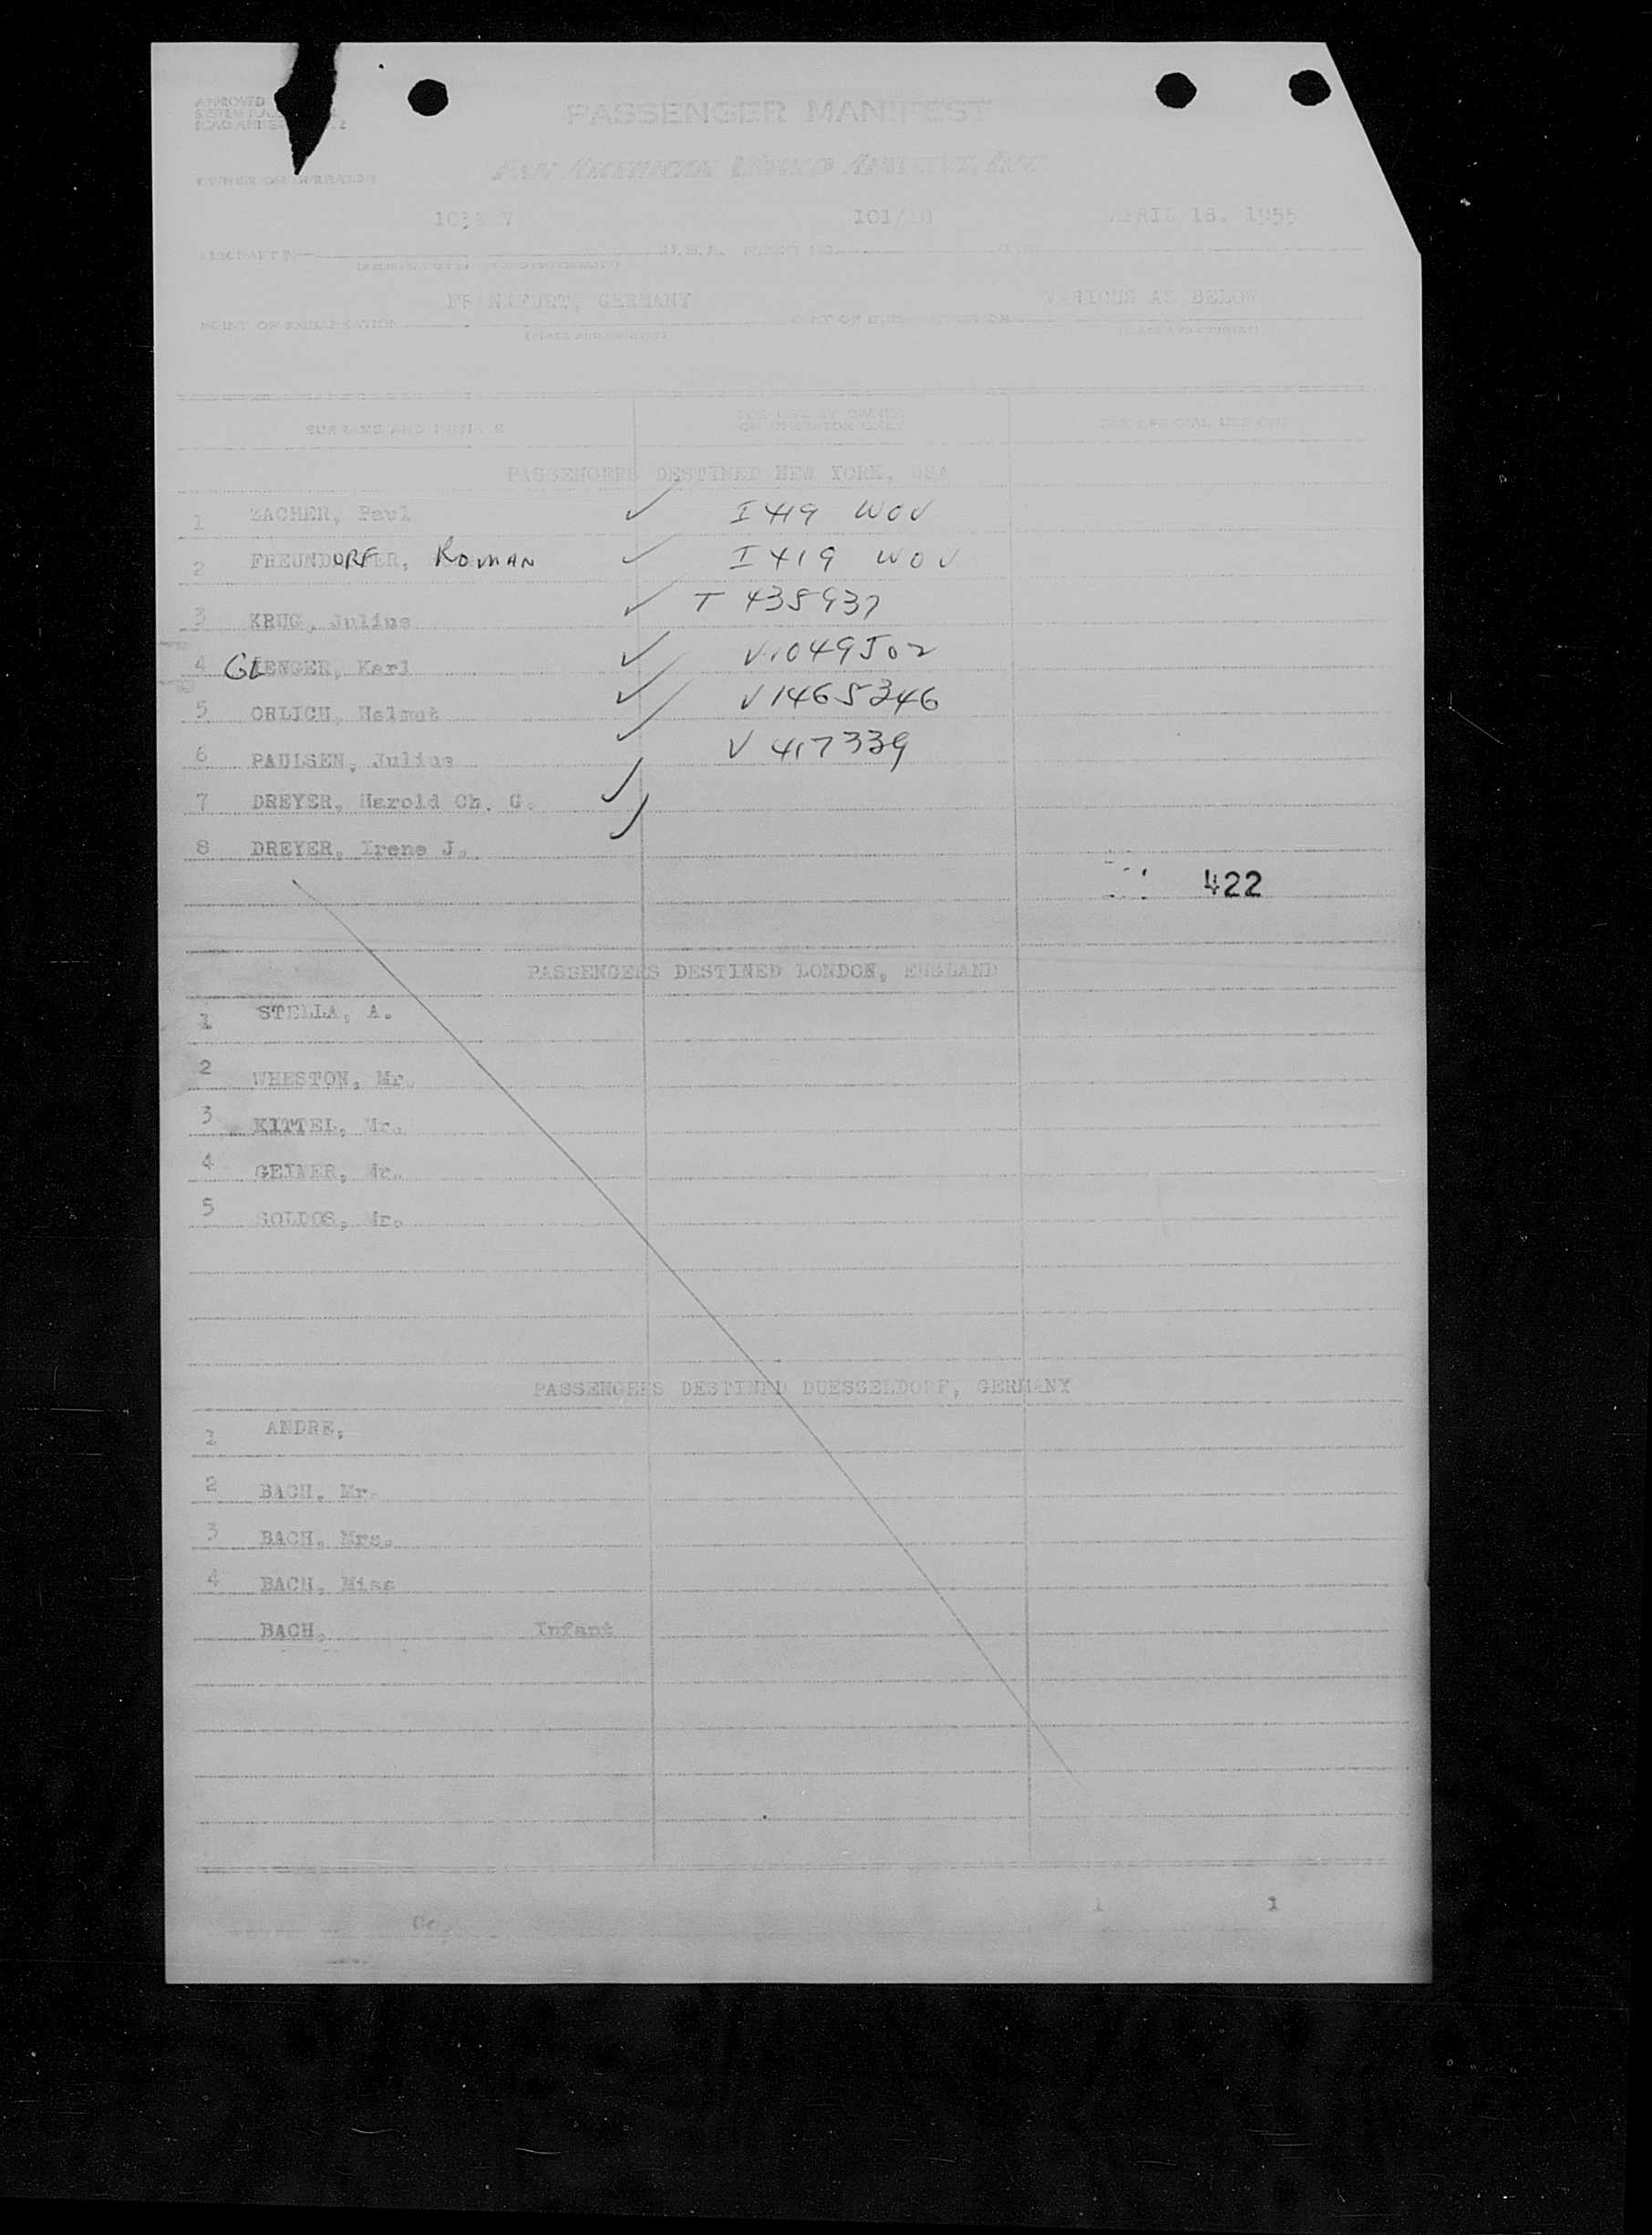 APPROVED
PASSENGER MANIFEST
PAN AMERICAN WORLD AIRWAYS, INC
OWNER OR OPERATOR
101/18 APRIL 18, 1955
AIRCRAFT
FRANKFURT, GERMANY VARIOUS AS BELOW
POINT OF EMBARKATION
(PLACE AND COUNTRY) (PLACE AND COUNTRY)
FOR USE BY OWNER
SURNAME AND INITIALS OR OPERATOR ONLY FOR OFFICIAL USE ONLY
PASSENGERS DESTINED NEW YORK, USA
1 ZACHER, Paul ✓ I 419 WOV
2 FREUNDORFER, ROMAN ✓ I 419 WOV
3 KRUG, Julius ✓ T 438937
4 GLENGER, Karl ✓ V1049502
5 ORLICH, Helmut ✓ V1465346
6 PAULSEN, Julius ✓ V 417339
7 DREYER, Harold Ch. G. ✓
8 DREYER, Irene J. ✓
422
PASSENGERS DESTINED LONDON, ENGLAND
1 STELLA, A.
2 WHESTON, Mr.
3 KITTEL, Mr.
4 GEIMER, Mr.
5 SOLDOS, Mr.
PASSENGERS DESTINED DUESSELDORF, GERMANY
1 ANDRE,
2 BACH, Mr.
3 BACH, Mrs.
4 BACH, Miss
BACH, Infant
1 1